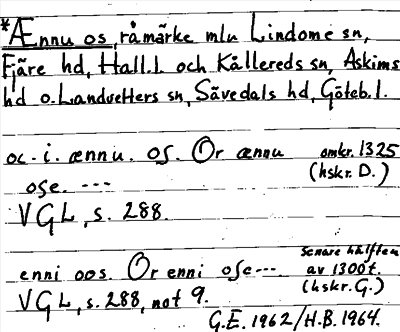 *Ænnu os, råmärke mlu Lindome sn,
Fjäre hd, Hall.l. och Kållereds sn, Askims
hd o. Landvetters sn, Sävedals hd, Göteb.l.
oc. i. ænnu. os. Or ænnu omkr. 1325
ose. --- (hskr. D.)
VGL, s. 288.
senare hälften
enni oos. Or enni ose--- av 1300t.
VGL, s. 288, not 9. (hskr. G.)
G.E. 1962/H.B. 1964.